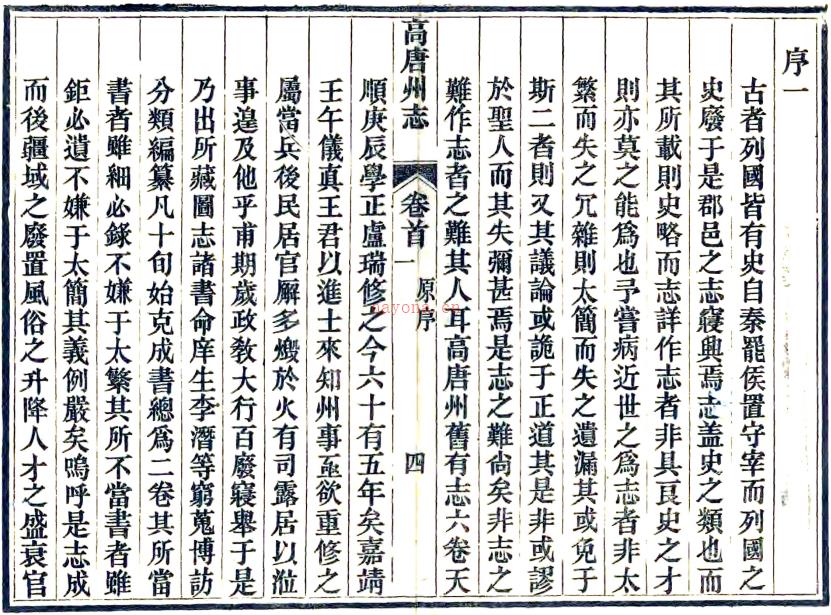 序一
古者列國皆有史自秦罷侯置守宰而列國之
史廢于是郡邑之志寖興焉志盖史之類也而
其所載則史略而志詳作志者非具良史之才
則亦莫之能爲也予嘗病近世之爲志者非太
繁而失之冗雜則太簡而失之遺漏其或免于
斯二者則又其議論或詭于正道其是非或謬
於聖人而其失彌甚焉是志之難尙矣非志之
難作志者之難其人耳高唐州舊有志六卷天
高唐州志 卷首一 原序 四
順庚辰學正盧瑞修之今六十有五年矣嘉靖
壬午儀真王君以進士來知州事亟欲重修之
屬當兵後民居官廨多燬於火有司露居以涖
事遑及他乎甫期歲政敎大行百廢寖舉于是
乃出所藏圖志諸書命庠生李濳等窮蒐博訪
分類編纂凡十旬始克成書總爲二卷其所當
書者雖細必錄不嫌于太繁其所不當書者雖
鉅必遺不嫌于太簡其義例嚴矣嗚呼是志成
而後疆域之廢置風俗之升降人才之盛衰官
nayona.cn